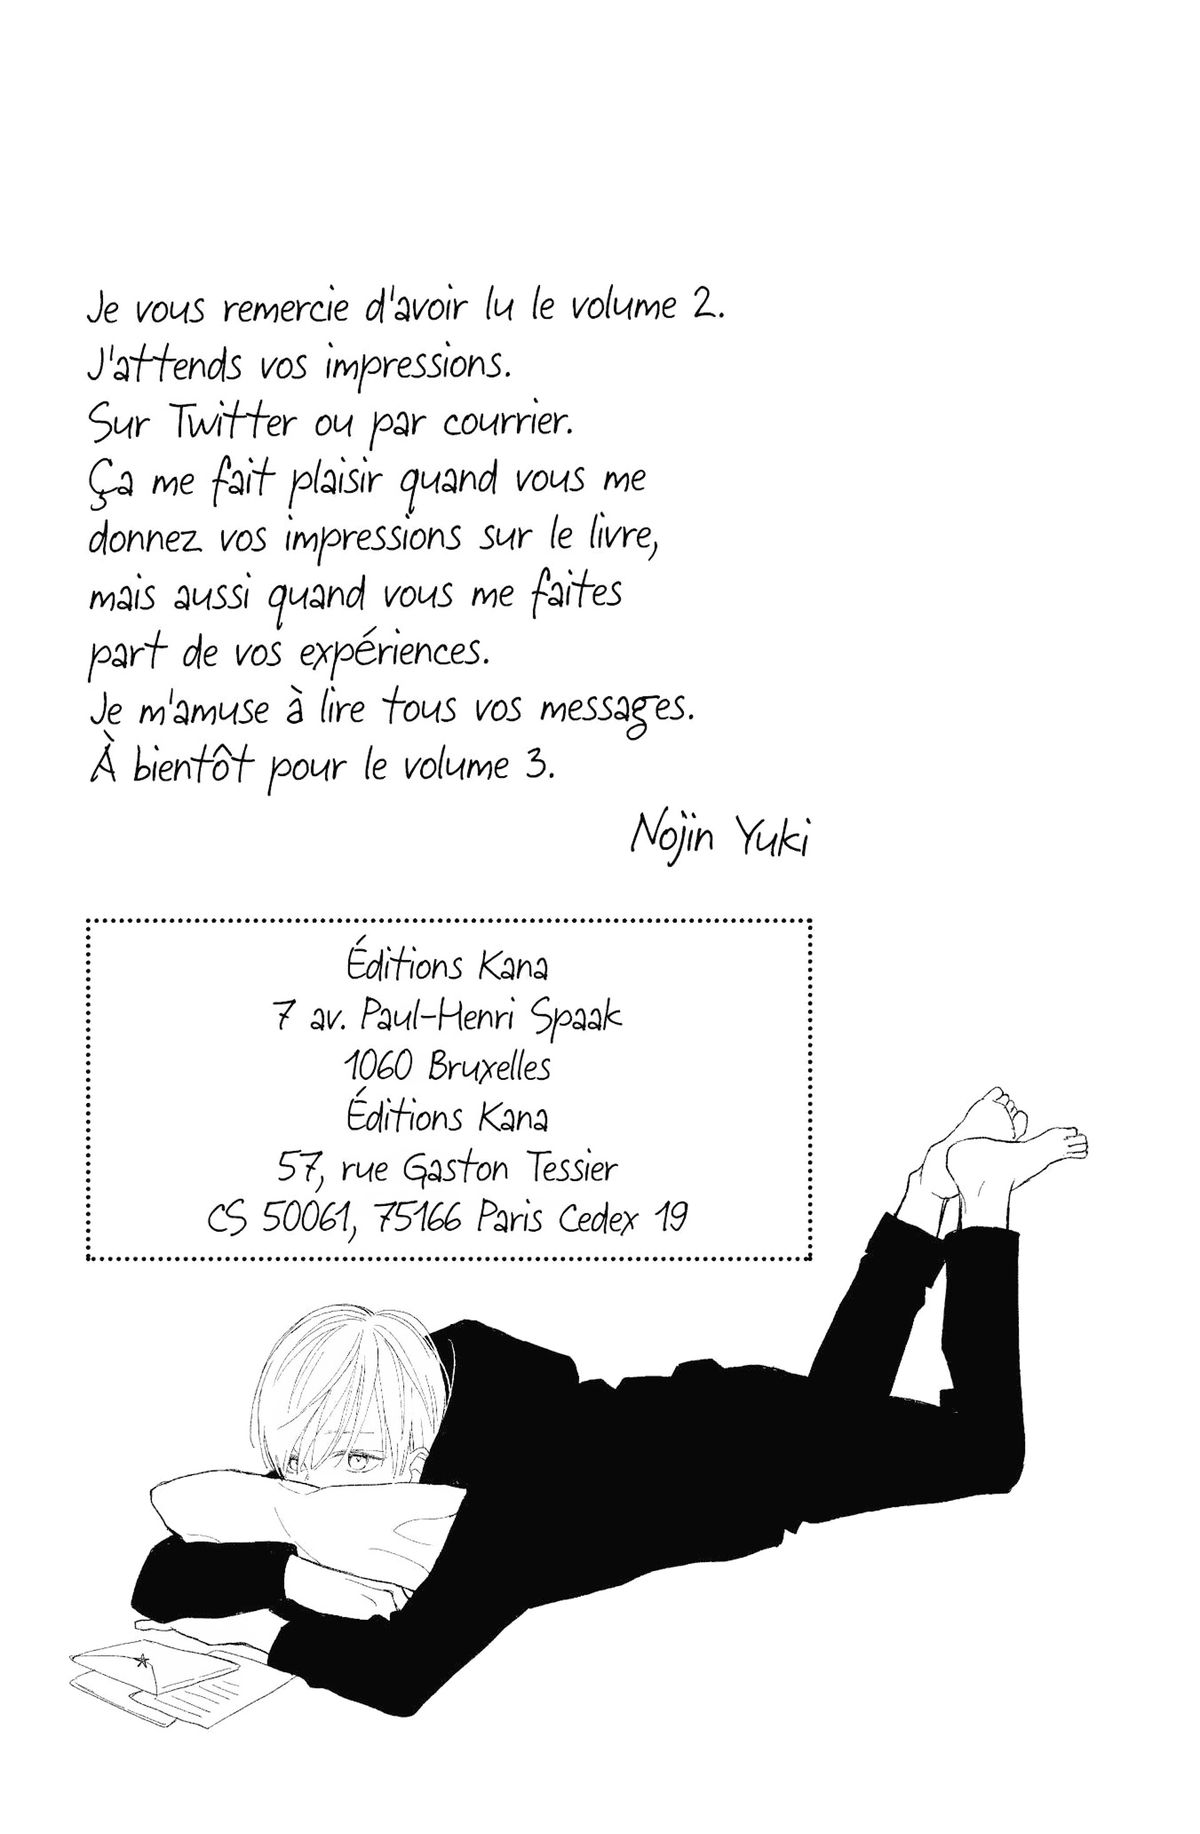 Je vous remercie d'avoir lu le volume 2.
J'attends vos impressions.
Sur Twitter ou par courrier.
Ça me fait plaisir quand vous me
donnez vos impressions sur le livre,
mais aussi quand vous me faites
part de vos expériences.
Je m'amuse à lire tous vos messages.
À bientôt pour le volume 3.
Nojin Yuki
Éditions Kana
7 av. Paul-Henri Spaak
1060 Bruxelles
Éditions Kana
57, rue Gaston Tessier
CS 50061, 75166 Paris Cedex 19